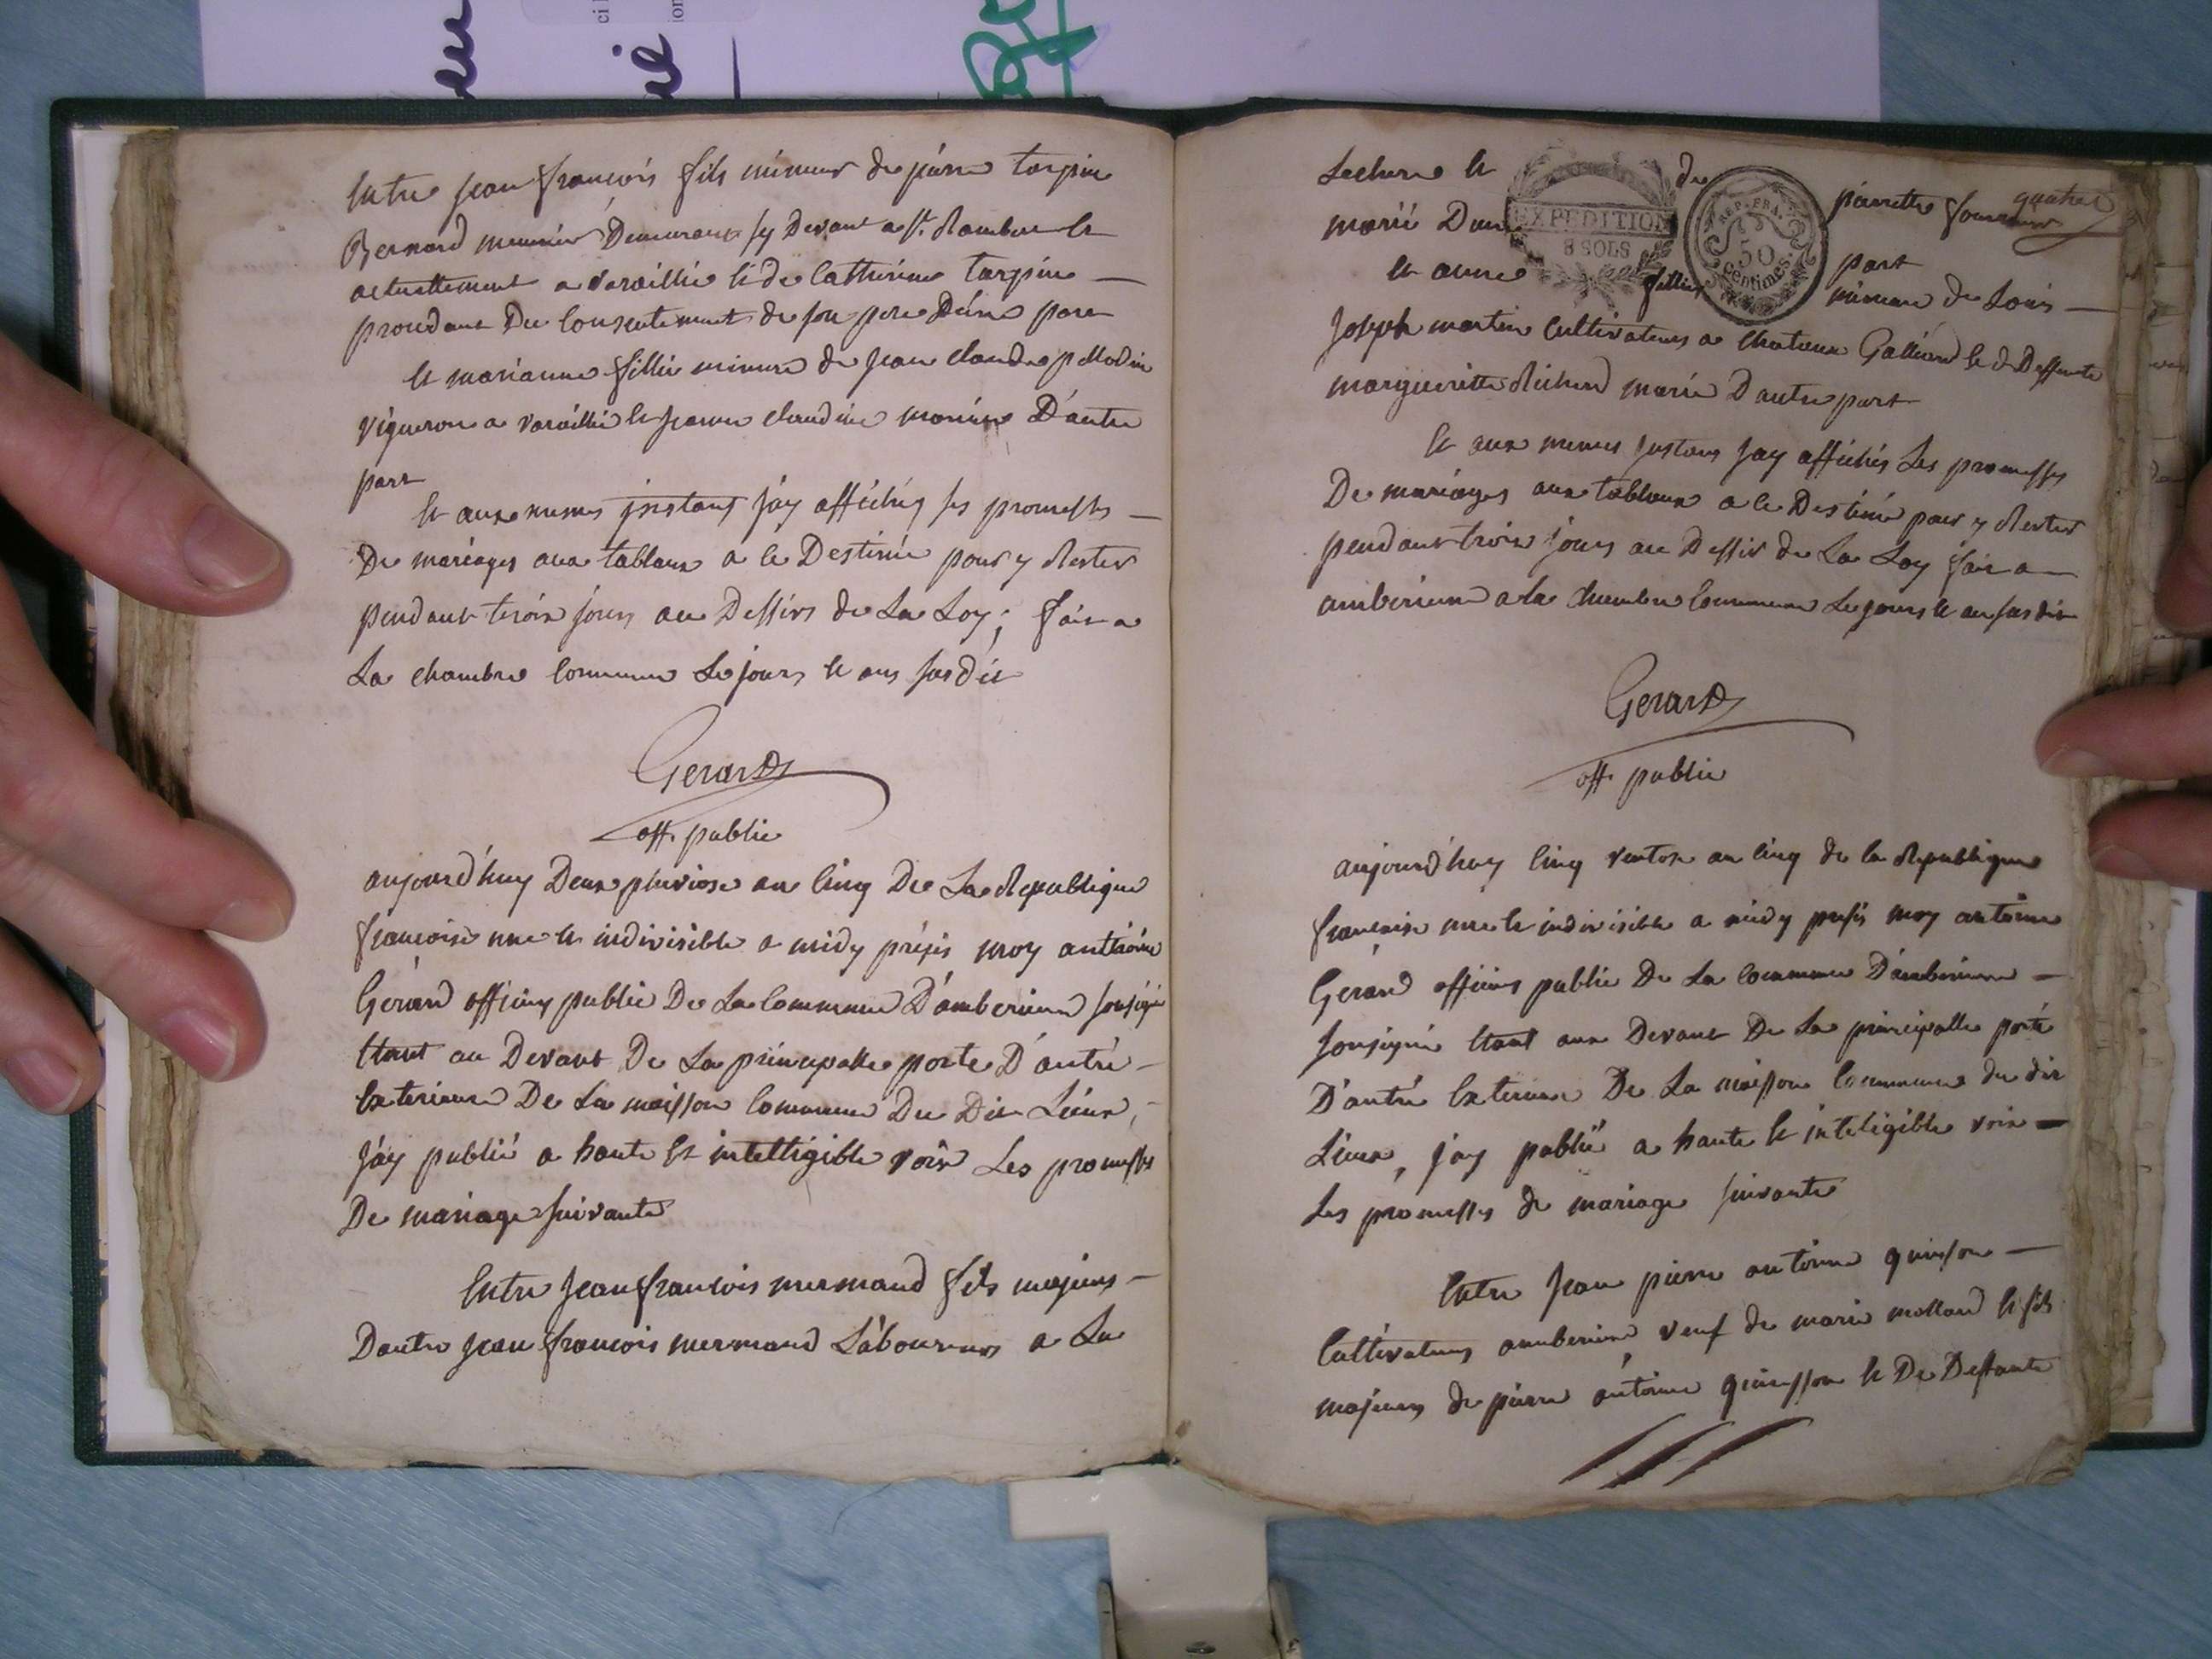 Entre jean françois fils mineur de pierre targin
Bernard meunier Demeurant sy devant a st. Rambert et
actuellement a varaillie et de Catherine targin —
proudant du Consentement de son pere D'une part
Et marianne fillie mineure de jean claude pellodin
vigneron a varaillie et jeanne claudine moniere D'autre
part
Et aux mêmes jnstans j'ay affichés ses promesses —
De mariages aux tableaux a ce Destinée pour y Rester
pendant trois jours au Dessirs de La Loy; fait a
La chambre Commune Le jours et ans susdit
Gerard
off. public
aujourd'huy Deux pluviose an cinq De La Republique
françoise une et indivisible a midy présis moy anthoine
Gérard officiers public De La Commune D'amberieux sousigné
Etant au Devant De La principalle porte D'antré —
Exterieure De La maisson Commune Du Dit Lieux,
J'ay publié a haute Et intelligible voix Les promesses
De mariage suivante
Entre jean françois mermand fils majeurs —
Dautre jean françois mermand Laboureurs a La
Lechere et de pierrette gauthet
marié D'une
EXPEDITION
8 SOLS
REP. FRA.
50
centimes.
part
et anne fillie mineure de Louis —
Joseph martin Cultivateurs a chateau Gaillard et de Deffunte
margueritte Richerd mariée D'autre part
Et aux mêmes jnstans jay affichés Les promesses
De mariages aux tableaux a ce Destiné pour y Rester
pendant trois jours au Dessir de La Loy fait a —
amberieux a la chambre Commune Le jours et an susdit
Gerard
off. public
aujourd'huy cinq ventose an cinq de la Republique
françaixe une et indivisible a midy presis moy antoine
Gérard officiers public De La Commune D'amberieux —
sousigné Etant aux Devant De La principalle porte
D'antré Exterieure De La maisson Commune du dit
Lieux, j'ay publié a haute et inteligible voix —
Les promesses de mariage suivante
Entre jean pierre antoine quinson —
Cultivateurs amberieux veuf de marie mollard et fils
majeurs de pierre antoine quinsson et De Deffunte